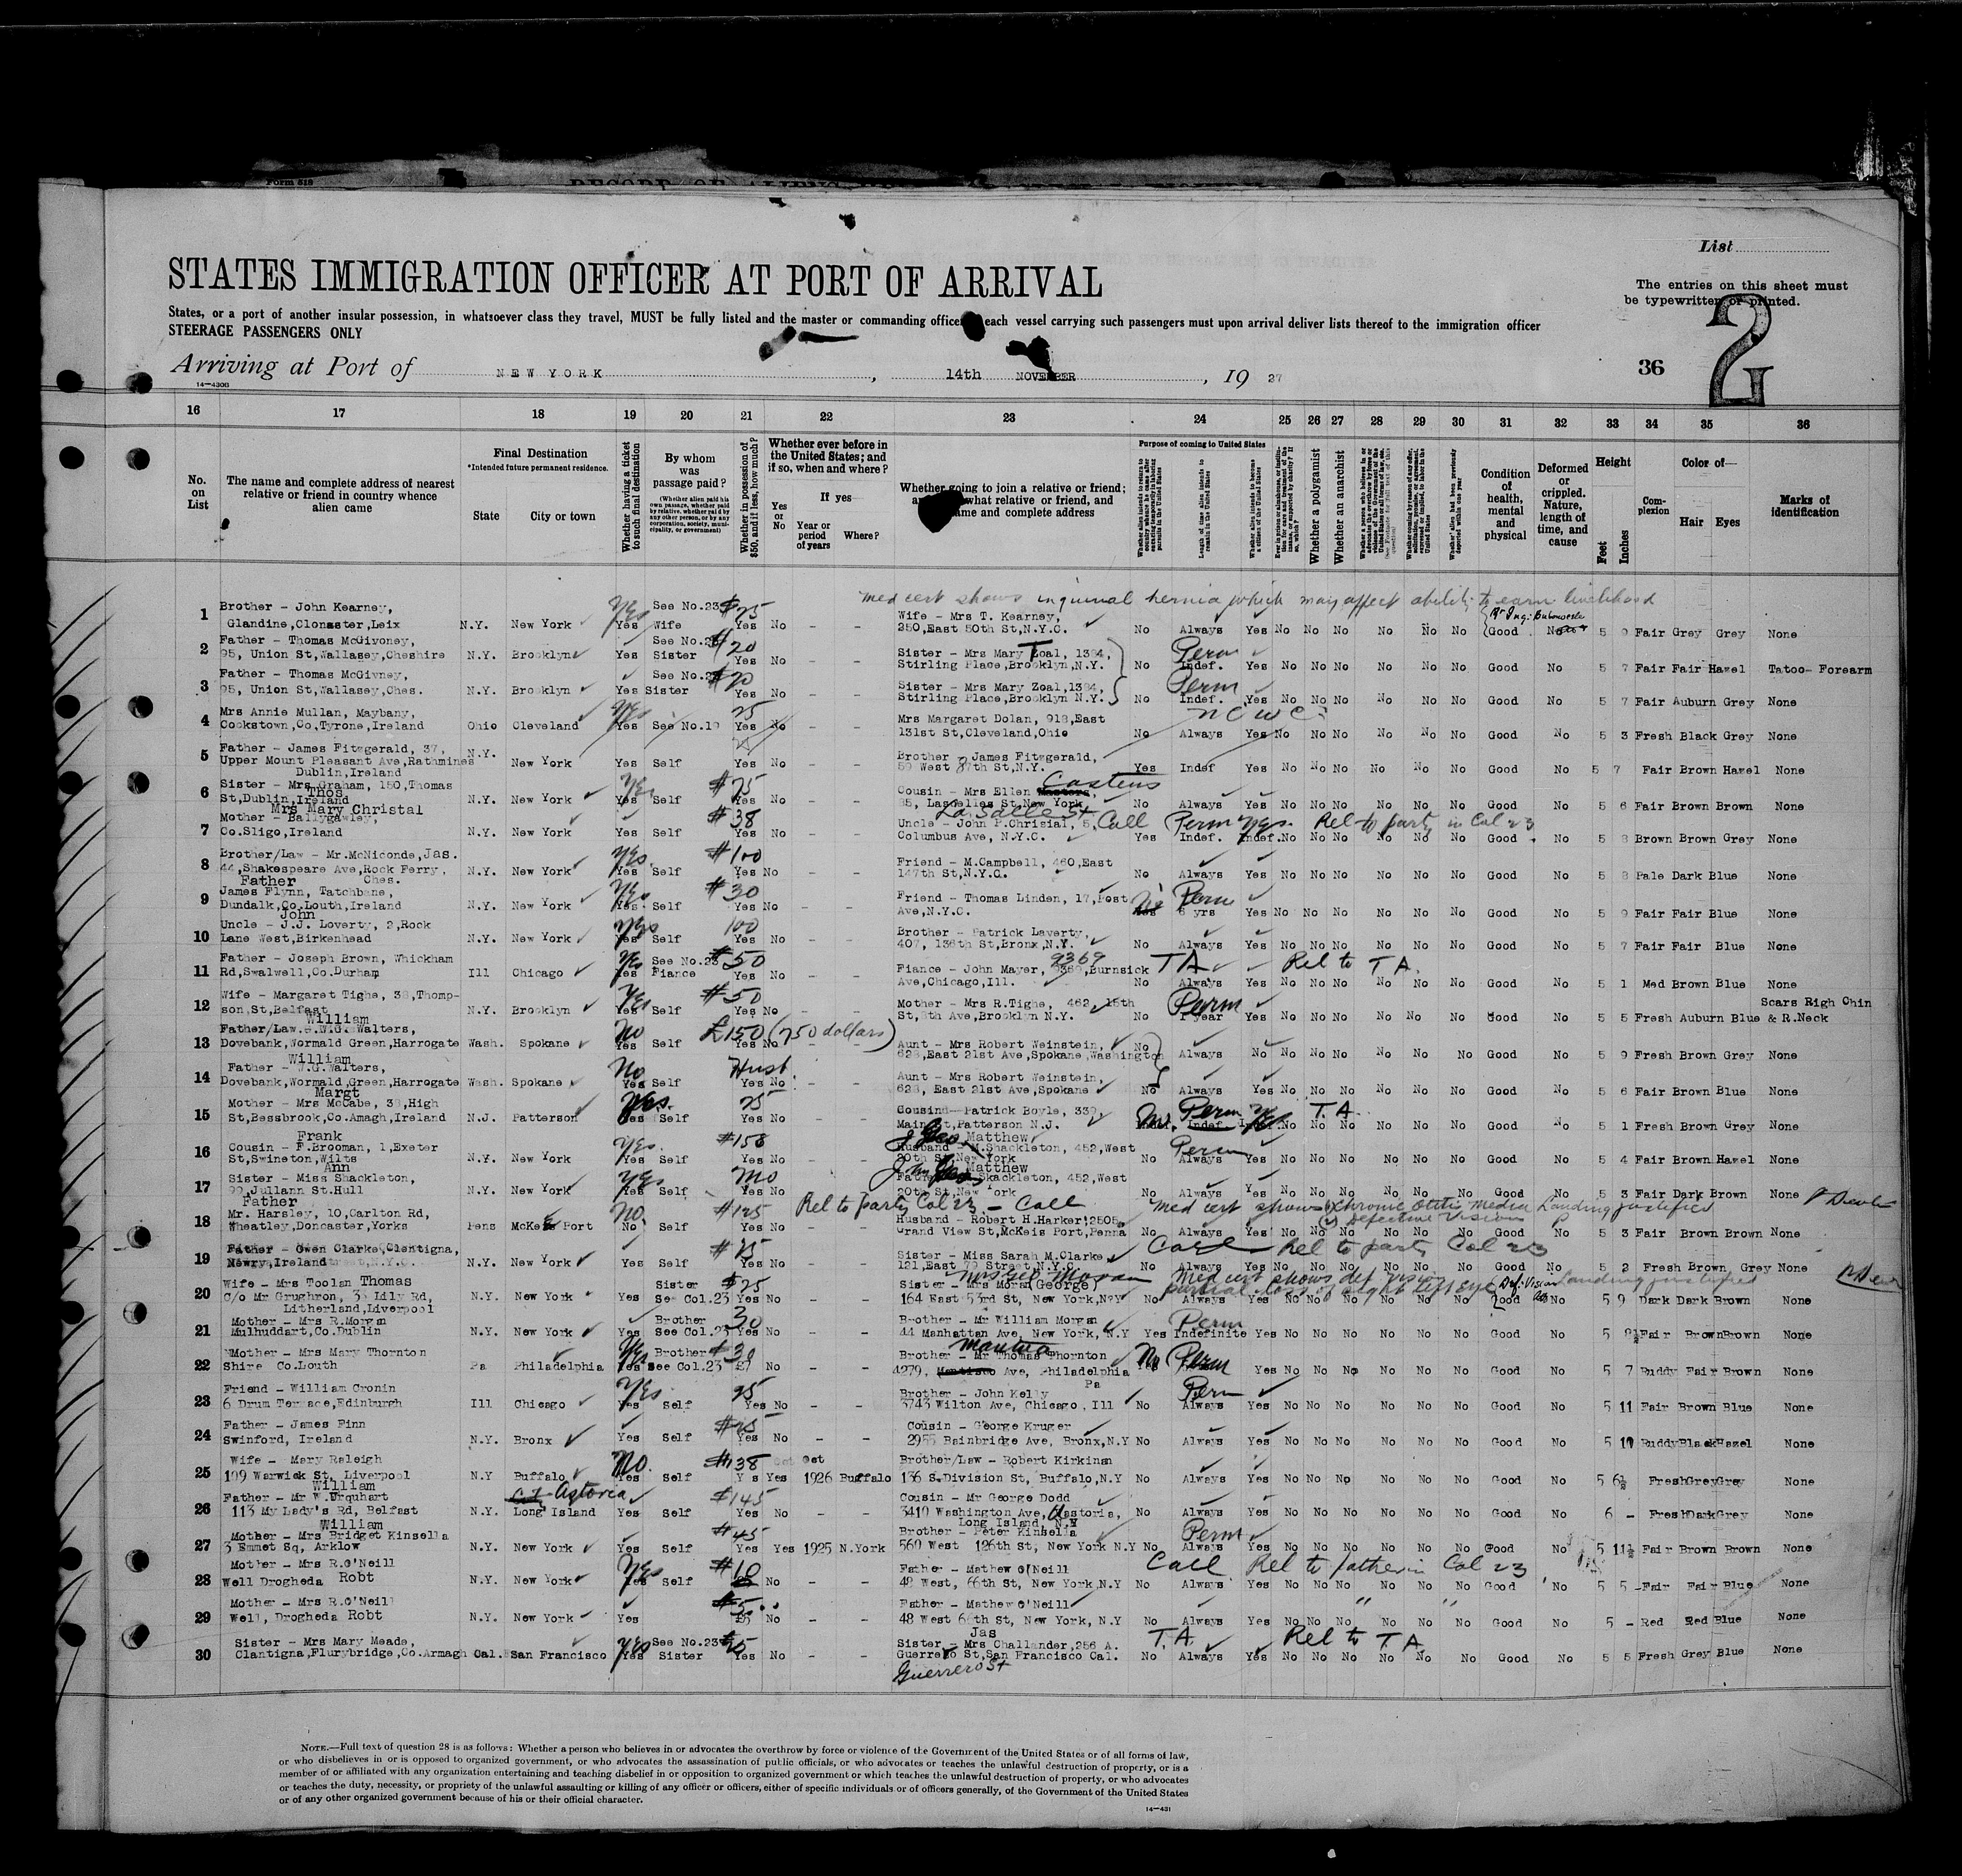 Form 518
List
STATES IMMIGRATION OFFICER AT PORT OF ARRIVAL
The entries on this sheet must
be typewritten or printed.
States, or a port of another insular possession, in whatsoever class they travel, MUST be fully listed and the master or commanding officer each vessel carrying such passengers must upon arrival deliver lists thereof to the immigration officer
STEERAGE PASSENGERS ONLY
Arriving at Port of NEW YORK, 14th NOVEMBER, 19 27
36 2
14—4306
16 17 18 19 20 21 22 23 24 25 26 27 28 29 30 31 32 33 34 35 36
No. on List
The name and complete address of nearest relative or friend in country whence alien came
Final Destination
*Intended future permanent residence.
State City or town
Whether having a ticket to such final destination
By whom was passage paid?
(Whether alien paid his own passage, whether paid by relative, whether paid by any other person, or by any corporation, society, municipality, or government)
Whether in possession of $50, and if less, how much?
Whether ever before in the United States; and if so, when and where?
Yes or No
If yes—
Year or period of years
Where?
Whether going to join a relative or friend; what relative or friend, and name and complete address
Purpose of coming to United States
Length of time alien intends to remain in the United States
Whether alien intends to become a citizen of the United States
Whether a polygamist
Whether an anarchist
Whether alien had been previously deported within one year
Condition of health, mental and physical
Deformed or crippled. Nature, length of time, and cause
Height
Feet Inches
Complexion
Color of—
Hair Eyes
Marks of identification
Med cert shows inguinal hernia which may affect ability to earn livelihood
1 Brother - John Kearney,
Glandine,Clonaster,Leix N.Y. New York Yes Yes See No.23 Wife $25 Yes No Wife - Mrs T. Kearney,
250,East 50th St,N.Y.C. No Always Yes No No No No No No Good 5 9 Fair Grey Grey None
2 Father - Thomas McGivoney,
95, Union St,Wallasey,Cheshire N.Y. Brooklyn Yes See No.23 Sister $20 Yes No - - Sister - Mrs Mary Zoal, 1384,
Stirling Place,Brooklyn,N.Y. No Perm Indef. Yes No No No No No No Good No 5 7 Fair Fair Hazel Tatoo- Forearm
3 Father - Thomas McGivney,
95, Union St,Wallasey,Ches. N.Y. Brooklyn Yes See No.23 Sister $20 Yes No - - Sister - Mrs Mary Zoal,1384,
Stirling Place,Brooklyn N.Y. No Perm Indef. Yes No No No No No No Good No 5 7 Fair Auburn Grey None
4 Mrs Annie Mullan, Maybany,
Cookstown,Co,Tyrone,Ireland Ohio Cleveland Yes Yes See No.19 25 Yes No - - Mrs Margaret Dolan, 918,East
131st St,Cleveland,Ohio No Always Yes No No No No No No Good No 5 3 Fresh Black Grey None
5 Father - James Fitzgerald, 37,
Upper Mount Pleasant Ave,Rathmines
Dublin,Ireland N.Y. New York Yes Self Yes No - - Brother - James Fitzgerald,
59 West 87th St,N.Y. Yes Indef Yes No No No No No No Good No 5 7 Fair Brown Hazel None
6 Sister - Mrs Graham, 150,Thomas
St,Dublin,Ireland Thos N.Y. New York Yes Yes Self $75 Yes No - - Cousin - Mrs Ellen Castens
85, Lasselles St,New York, La Salle St No Always Yes No No No No No No Good No 5 6 Fair Brown Brown None
7 Mrs Mary Christal
Mother - Ballygawley,
Co.Sligo,Ireland N.Y. New York Yes Self $38 Yes No - - Uncle - John P.Chrisial, 5,
Columbus Ave, N.Y.C. Call Perm Yes. Rel to party in Col 23
Yes Indef. Indef. No No No No No No Good No 5 8 Brown Brown Grey None
8 Brother/Law - Mr.McNiconde,Jas.
44,Shakespeare Ave,Rock Ferry,
Ches. N.Y. New York Yes Yes Self $100 Yes No - - Friend - M.Campbell, 460,East
147th St,N.Y.C. No Always Yes No No No No No No Good No 5 8 Pale Dark Blue None
9 Father
James Flynn, Tatchbane,
Dundalk,Co.Louth,Ireland N.Y. New York Yes Yes Self $30 Yes No - - Friend - Thomas Linden, 17,Post
Ave,N.Y.C. No Perm 6 yrs Yes No No No No No No Good No 5 9 Fair Fair Blue None
10 John
Uncle - J.J. Loverty, 2,Rock
Lane West,Birkenhead N.Y. New York Yes Yes Self 100 Yes No - - Brother - Patrick Laverty,
407, 136th St,Bronx,N.Y. No Always Yes No No No No No No Good No 5 7 Fair Fair Blue None
11 Father - Joseph Brown, Whickham
Rd,Swalwell,Co.Durham Ill Chicago Yes Yes See No.23 Fiance $50 Yes No - - Fiance - John Mayer, 9369 Burnsick
Ave,Chicago,Ill. T A Rel to T A.
No Always Yes No No No No No No Good No 5 1 Med Brown Blue None
12 Wife - Margaret Tighe, 38,Thomp-
son,St,Belfast N.Y. Brooklyn Yes Yes Self $50 Yes No - - Mother - Mrs R.Tighe, 462, 15th
St,8th Ave,Brooklyn N.Y. No Perm 1 year Yes No No No No No No Good No 5 5 Fresh Auburn Blue Scars Righ Chin & R.Neck
13 William
Father/Law.- W.G. Walters,
Dovebank,Wormald Green,Harrogate Wash. Spokane No Yes Self £150 (750 dollars) Yes No - - Aunt - Mrs Robert Weinstein,
628,East 21st Ave,Spokane,Washington No Always No No No No No No No Good No 5 9 Fresh Brown Grey None
14 William
Father - W.G.Walters,
Dovebank,Wormald,Green,Harrogate Wash. Spokane No Yes Self Husb. Yes No - - Aunt - Mrs Robert Weinstein,
628, East 21st Ave,Spokane No Always Yes No No No No No No Good No 5 6 Fair Brown Blue None
15 Margt
Mother - Mrs McCabe, 38,High
St,Bessbrook,Co.Amagh,Ireland N.J. Patterson Yes. Yes Self 25 Yes No - - Cousin - Patrick Boyle, 339,
Main St,Patterson N.J. Perm Indef. T.A. No No No No No No Good No 5 1 Fresh Brown Grey None
16 Frank
Cousin - F.Brooman, 1,Exeter
St,Swineton,Wilts N.Y. New York Yes. Yes Self $158 Yes No - - Matthew
Husband - M.Shackleton, 452,West
20th St,New York No Perm Always Yes No No No No No No Good No 5 4 Fair Brown Hazel None
17 Ann
Sister - Miss Shackleton,
99,Juliann St.Hull N.Y. New York Yes Yes Self Mo Yes No - - Matthew
Father Shackleton, 452,West
20th St,New York No Always Yes No No No No No No Good No 5 3 Fair Dark Brown None
Rel to party Col 23 - Call Med cert shows (1) chronic otitis media Landing justified
(2) Defective vision
18 Father
Mr. Harsley, 10,Carlton Rd,
Wheatley,Doncaster,Yorks Pens McKees Port No. No Self $125 Yes No - - Husband - Robert H.Harker 2505
Grand View St,McKeis Port,Penna No Always Yes No No No No No No Good No 5 3 Fair Brown Brown None
19 Father - Owen Clarke,Clentigna,
Newry,Ireland N.Y. New York Yes Self $25 Yes No - - Sister - Miss Sarah M.Clarke
121,East 79 Street N.Y.C. Call - Rel to party Col 23
No Always Yes No No No No No No Good No 5 2 Fresh Brown Grey None
20 Wife - Mrs Toolan Thomas
C/o Mr Grughron, 35 Lily Rd,
Litherland,Liverpool N.Y. New York Yes Sister See Col.23 $25 Yes No - - Mrs Geo Moran
Sister - Mrs Moran(George)
164 East 53rd St, New York,N.Y Med cert shows def vision partial loss of sight left eye Def: Vision Landing justified
No Always Yes No No No No No No Good No 5 9 Dark Dark Brown None
21 Mother - Mrs R.Morgan
Mulhuddart,Co.Dublin N.Y. New York Yes Brother See Col.23 30 Yes No - - Brother - Mr William Morgan
44 Manhattan Ave, New York, N.Y Yes Perm Indefinite Yes No No No No No No Good No 5 8½ Fair Brown Brown None
22 Mother - Mrs Mary Thornton
Shire Co.Louth Pa Philadelphia Yes Yes Brother See Col.23 $30 No - - Mantua
Brother - Mr Thomas Thornton
4279, Ave, Philadelphia Pa No Perm Yes No No No No No No Good No 5 7 Ruddy Fair Brown None
23 Friend - William Cronin
6 Drum Terrace,Edinburgh Ill Chicago Yes. Yes Self 25 Yes No - - Brother - John Kelly
3743 Wilton Ave, Chicago, Ill No Perm Always Yes No No No No No No Good No 5 11 Fair Brown Blue None
24 Father - James Finn
Swinford, Ireland N.Y. Bronx Yes Self $25 Yes No - - Cousin - George Kruger
2955 Bainbridge Ave, Bronx,N.Y No Always Yes No No No No No No Good No 5 10 Ruddy Black Hazel None
25 Wife - Mary Raleigh
109 Warwick St, Liverpool N.Y Buffalo No. Yes Self $138 Yes Yes Oct 1926 Buffalo Brother/Law - Robert Kirkman
136 S.Division St, Buffalo,N.Y No Always Yes No No No No No No Good No 5 6½ Fresh Grey Grey None
26 William
Father - Mr W.Urquhart
113 My Lady's Rd, Belfast N.Y. Astoria Long Island Yes Self $145 Yes No - - Cousin - Mr George Dodd
3410 Washington Ave, Astoria,
Long Island, N.Y No Always Yes No No No No No No Good No 6 - Fresh Dark Grey None
27 William
Mother - Mrs Bridget Kinsella
3 Emmet Sq, Arklow N.Y. New York Yes Self $45 Yes Yes 1925 N.York Brother - Peter Kinsella
569 West 126th St, New York N.Y No Perm Always Yes No No No No No No Good No 5 11½ Fair Brown Brown None
28 Mother - Mrs R.O'Neill
Well Drogheda Robt N.Y. New York Yes Yes Self $10 No - - Father - Mathew O'Neill
48 West, 66th St, New York,N.Y Call Rel to father in Col 23
No Always Yes No No No No No No Good No 5 5 Fair Fair Blue None
29 Mother - Mrs R.O'Neill
Well, Drogheda Robt N.Y. New York Yes $5 No - - Father - Mathew O'Neill
48 West 66th St, New York, N.Y No Always Yes No No No No No No Good No 5 - Red Red Blue None
30 Sister - Mrs Mary Meade,
Clantigna,Flurybridge,Co.Armagh Cal. San Francisco Yes Yes See No.23 Sister $25 Yes No - - Jas
Sister - Mrs Challander,256 A.
Guerrero St,San Francisco Cal. T.A. Rel to T A
No Always Yes No No No No No No Good No 5 5 Fresh Grey Blue None
Guerrero St
NOTE.—Full text of question 28 is as follows: Whether a person who believes in or advocates the overthrow by force or violence of the Government of the United States or of all forms of law,
or who disbelieves in or is opposed to organized government, or who advocates the assassination of public officials, or who advocates or teaches the unlawful destruction of property, or is a
member of or affiliated with any organization entertaining and teaching disbelief in or opposition to organized government or which teaches the unlawful destruction of property, or who advocates
or teaches the duty, necessity, or propriety of the unlawful assaulting or killing of any officer or officers, either of specific individuals or of officers generally, of the Government of the United States
or of any other organized government because of his or their official character.
14—431